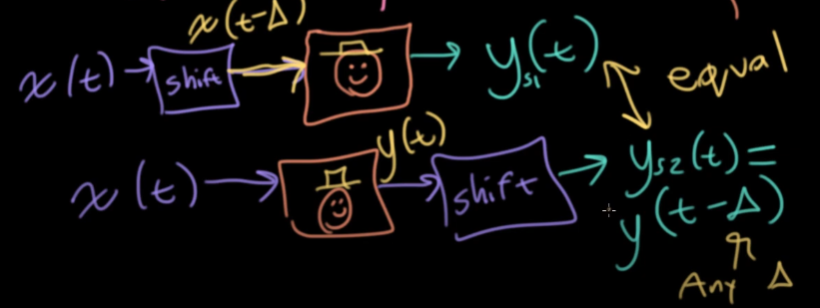 x(t-Δ)
x(t) → shift → → y_{s1}(t)
equal
x(t) → y(t) → shift → y_{s2}(t) =
y(t-Δ)
Any Δ